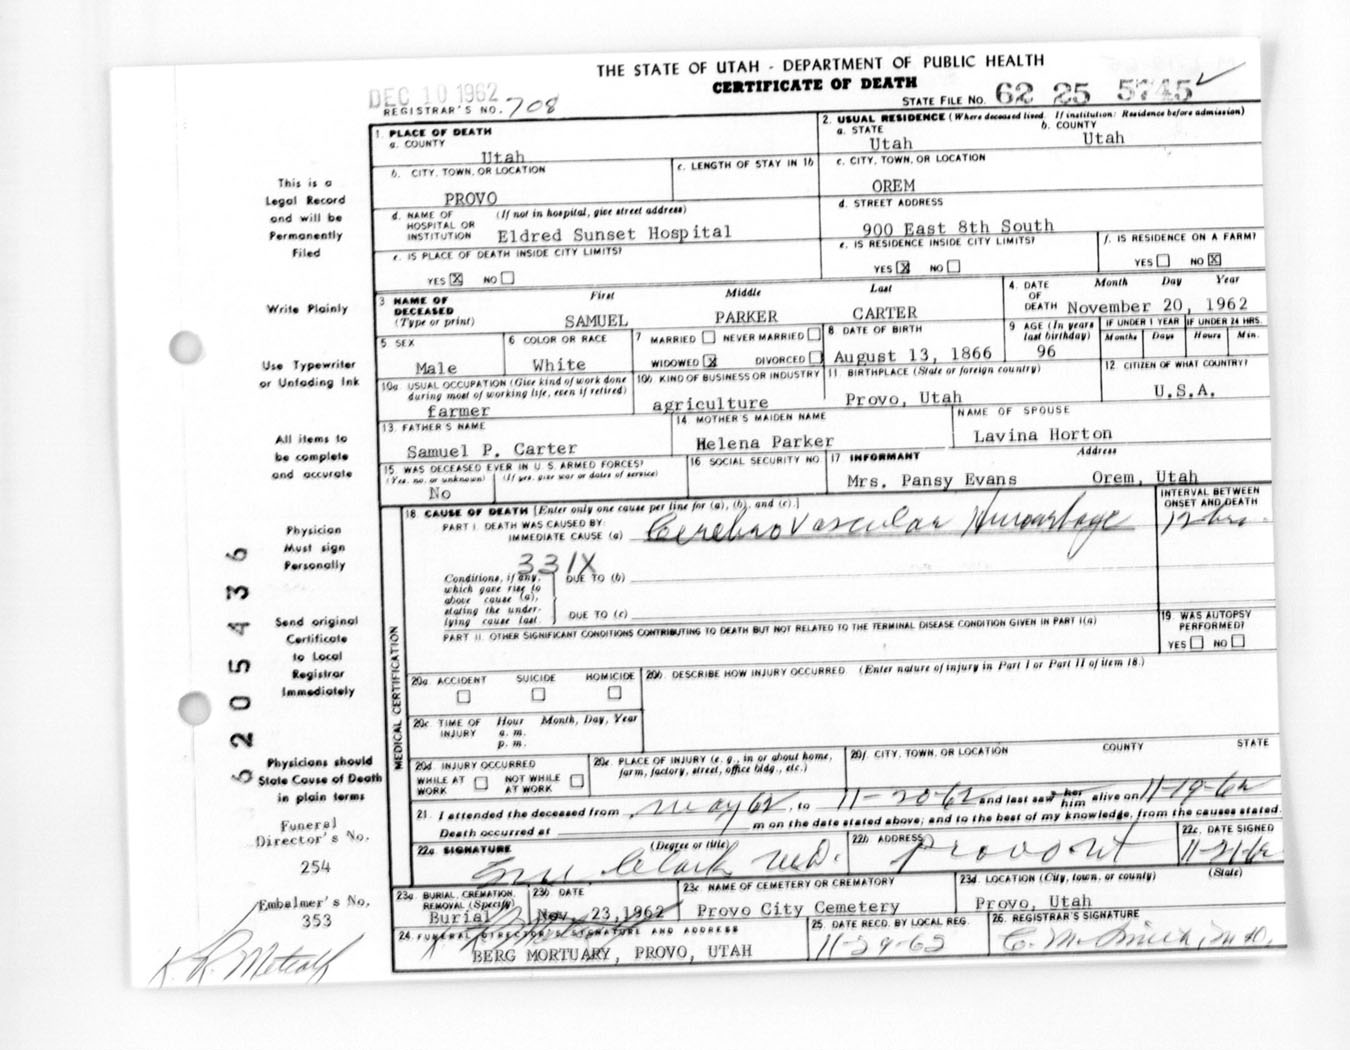 THE STATE OF UTAH - DEPARTMENT OF PUBLIC HEALTH
CERTIFICATE OF DEATH
DEC 10 1962
REGISTRAR'S NO. 708
STATE FILE NO. 62 25 5745
1. PLACE OF DEATH
a. COUNTY
Utah
2. USUAL RESIDENCE (Where deceased lived. If institution: Residence before admission)
a. STATE
Utah
b. COUNTY
Utah
b. CITY, TOWN, OR LOCATION
PROVO
c. LENGTH OF STAY IN 1b
c. CITY, TOWN, OR LOCATION
OREM
d. NAME OF HOSPITAL OR INSTITUTION
(If not in hospital, give street address)
Eldred Sunset Hospital
d. STREET ADDRESS
900 East 8th South
e. IS PLACE OF DEATH INSIDE CITY LIMITS?
YES X NO
e. IS RESIDENCE INSIDE CITY LIMITS?
YES X NO
f. IS RESIDENCE ON A FARM?
YES NO X
3 NAME OF DECEASED (Type or print)
First Middle Last
SAMUEL PARKER CARTER
4. DATE OF DEATH
Month Day Year
November 20, 1962
5 SEX
Male
6 COLOR OR RACE
White
7 MARRIED NEVER MARRIED
WIDOWED X DIVORCED
8 DATE OF BIRTH
August 13, 1866
9 AGE (In years last birthday)
96
IF UNDER 1 YEAR
Months Days
IF UNDER 24 HRS.
Hours Min.
10a USUAL OCCUPATION (Give kind of work done during most of working life, even if retired)
farmer
10b KIND OF BUSINESS OR INDUSTRY
agriculture
11 BIRTHPLACE (State or foreign country)
Provo, Utah
12 CITIZEN OF WHAT COUNTRY?
U.S.A.
13. FATHER'S NAME
Samuel P. Carter
14 MOTHER'S MAIDEN NAME
Helena Parker
NAME OF SPOUSE
Lavina Horton
15 WAS DECEASED EVER IN U.S. ARMED FORCES?
(Yes, no, or unknown) (If yes, give war or dates of service)
No
16 SOCIAL SECURITY NO.
17 INFORMANT Address
Mrs. Pansy Evans Orem, Utah
18 CAUSE OF DEATH [Enter only one cause per line for (a), (b), and (c).]
PART I. DEATH WAS CAUSED BY:
IMMEDIATE CAUSE (a) Cerebro Vascular Hemorrhage
INTERVAL BETWEEN ONSET AND DEATH
12 hrs.
331X
Conditions, if any, which gave rise to above cause (a), stating the underlying cause last.
DUE TO (b)
DUE TO (c)
PART II. OTHER SIGNIFICANT CONDITIONS CONTRIBUTING TO DEATH BUT NOT RELATED TO THE TERMINAL DISEASE CONDITION GIVEN IN PART I(a)
19. WAS AUTOPSY PERFORMED?
YES NO
MEDICAL CERTIFICATION
20a. ACCIDENT SUICIDE HOMICIDE
20b. DESCRIBE HOW INJURY OCCURRED. (Enter nature of injury in Part I or Part II of item 18.)
20c. TIME OF INJURY
Hour Month, Day, Year
a. m.
p. m.
20d. INJURY OCCURRED
WHILE AT WORK NOT WHILE AT WORK
20e. PLACE OF INJURY (e. g., in or about home, farm, factory, street, office bldg., etc.)
20f. CITY, TOWN, OR LOCATION COUNTY STATE
21. I attended the deceased from May 62, to 11-20-62 and last saw her him alive on 11-19-62
Death occurred at m on the date stated above; and to the best of my knowledge, from the causes stated.
22a. SIGNATURE (Degree or title)
Clark M.D.
22b ADDRESS
Provo Ut
22c. DATE SIGNED
11-21-62
23a. BURIAL, CREMATION, REMOVAL (Specify)
Burial
23b DATE
Nov. 23, 1962
23c NAME OF CEMETERY OR CREMATORY
Provo City Cemetery
23d. LOCATION (City, town, or county) (State)
Provo, Utah
24. FUNERAL DIRECTOR'S SIGNATURE AND ADDRESS
BERG MORTUARY, PROVO, UTAH
25. DATE RECD. BY LOCAL REG.
11-29-62
26. REGISTRAR'S SIGNATURE
This is a
Legal Record
and will be
Permanently
Filed
Write Plainly
Use Typewriter
or Unfading Ink
All items to
be complete
and accurate
Physician
Must sign
Personally
Send original
Certificate
to Local
Registrar
Immediately
Physicians should
State Cause of Death
in plain terms
Funeral
Director's No.
254
Embalmer's No.
353
K. R. Metcalf
6205436